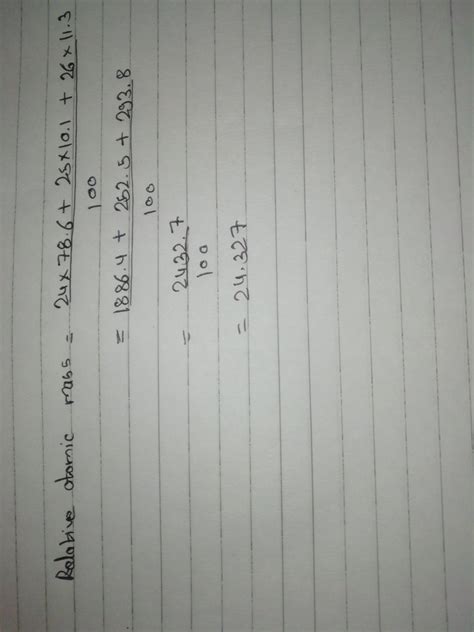 Relative atomic mass = 24×78.6 + 25×10.1 + 26×11.3
100
= 1886.4 + 252.5 + 293.8
100
= 2432.7
100
= 24.327